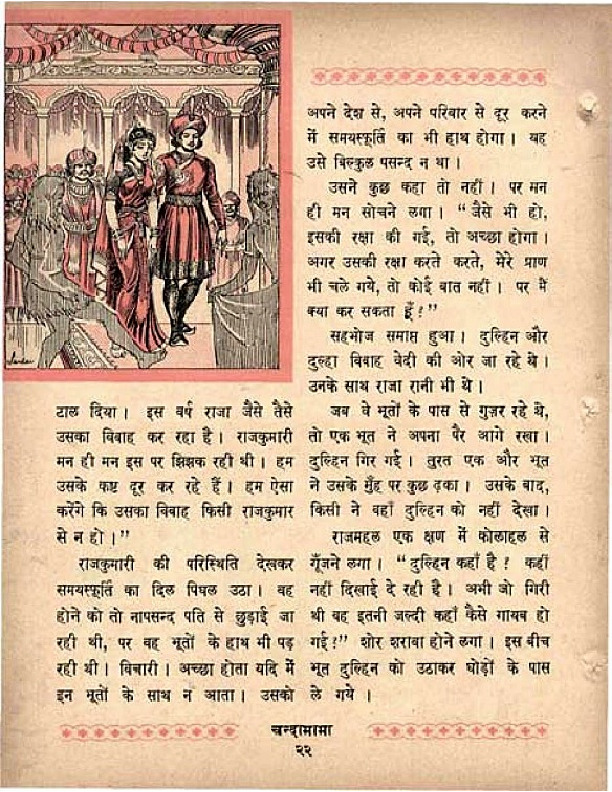 टाल दिया। इस वर्ष राजा जैसे तैसे
उसका विवाह कर रहा है। राजकुमारी
मन ही मन इस पर झिझक रही थी। हम
उसके कष्ट दूर कर रहे हैं। हम ऐसा
करेंगे कि उसका विवाह किसी राजकुमार
से न हो।"
राजकुमारी की परिस्थिति देखकर
समयस्फूर्ति का दिल पिघल उठा। वह
होने को तो नापसन्द पति से छुड़ाई जा
रही थी, पर वह भूतों के हाथ भी पड़
रही थी। बिचारी। अच्छा होता यदि मैं
इन भूतों के साथ न आता। उसको
अपने देश से, अपने परिवार से दूर करने
में समयस्फूर्ति का भी हाथ होगा। यह
उसे बिल्कुल पसन्द न था।
उसने कुछ कहा तो नहीं। पर मन
ही मन सोचने लगा। "जैसे भी हो,
इसकी रक्षा की गई, तो अच्छा होगा।
अगर उसकी रक्षा करते करते, मेरे प्राण
भी चले गये, तो कोई बात नहीं। पर मैं
क्या कर सकता हूँ!"
सहभोज समाप्त हुआ। दुल्हिन और
दुल्हा विवाह वेदी की ओर जा रहे थे।
उनके साथ राजा रानी भी थे।
जब वे भूतों के पास से गुज़र रहे थे,
तो एक भूत ने अपना पैर आगे रखा।
दुल्हिन गिर गई। तुरत एक और भूत
ने उसके मुँह पर कुछ ढका। उसके बाद,
किसी ने वहाँ दुल्हिन को नहीं देखा।
राजमहल एक क्षण में कोलाहल से
गूँजने लगा। "दुल्हिन कहाँ है! कहीं
नहीं दिखाई दे रही है। अभी जो गिरी
थी वह इतनी जल्दी कहाँ कैसे गायब हो
गई!" शोर शराबा होने लगा। इस बीच
भूत दुल्हिन को उठाकर घोड़ों के पास
ले गये।
चन्दामामा
२२